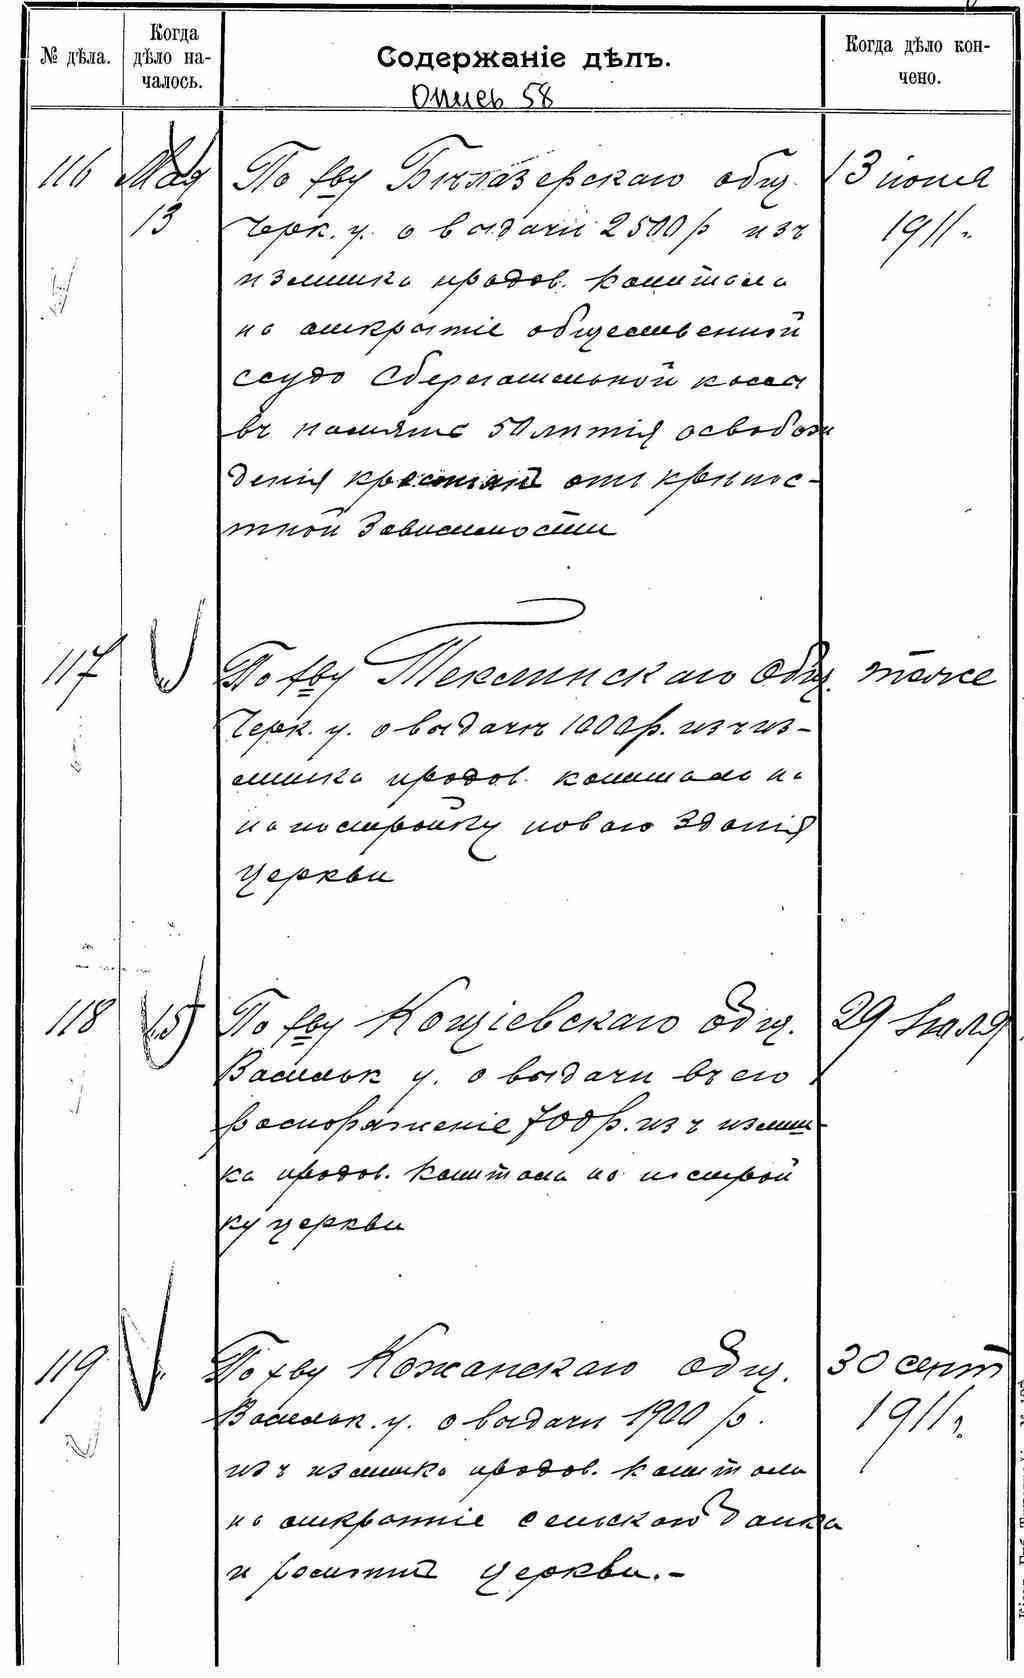 № дѣла.
Когда дѣло на-
чалось.
Содержаніе дѣлъ.
Когда дѣло кон-
чено.
Опись 58
116 Мая По хву Бѣлазерскаго общ. 13 іюня
13 Черк. у. о выдачи 2500 р изъ 1911 г.
излишка продов. капитала
на открытіе общественной
ссудо Сберегательной кассы
въ память 50 лѣтія освобож
денія крестьянъ отъ крѣпос-
тной Зависимости
117 По хву Теклинскаго Общ. тоже
Черк. у. о выдачѣ 1000 р. изъ из-
лишка продов. капитала на
на постройку новаго Зданія
церкви
118 15 По хву Кощіевскаго Общ. 29 Іюля
Васильк у. о выдачи въ его
распоряженіе 700 р. изъ излиш-
ка продов. Капитала на построй
ку церкви
119 По хву Кожанскаго Общ. 30 сент
Васильк. у. о выдачи 1900 р. 1911 г.
изъ излишка продов. капитала
на открытіе сельскаго банка
и церкви.-